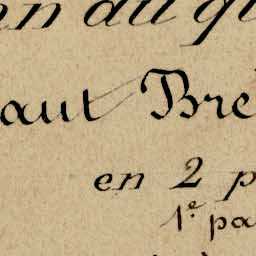 en du qu
aut Bré
en 2 p
1.e pa